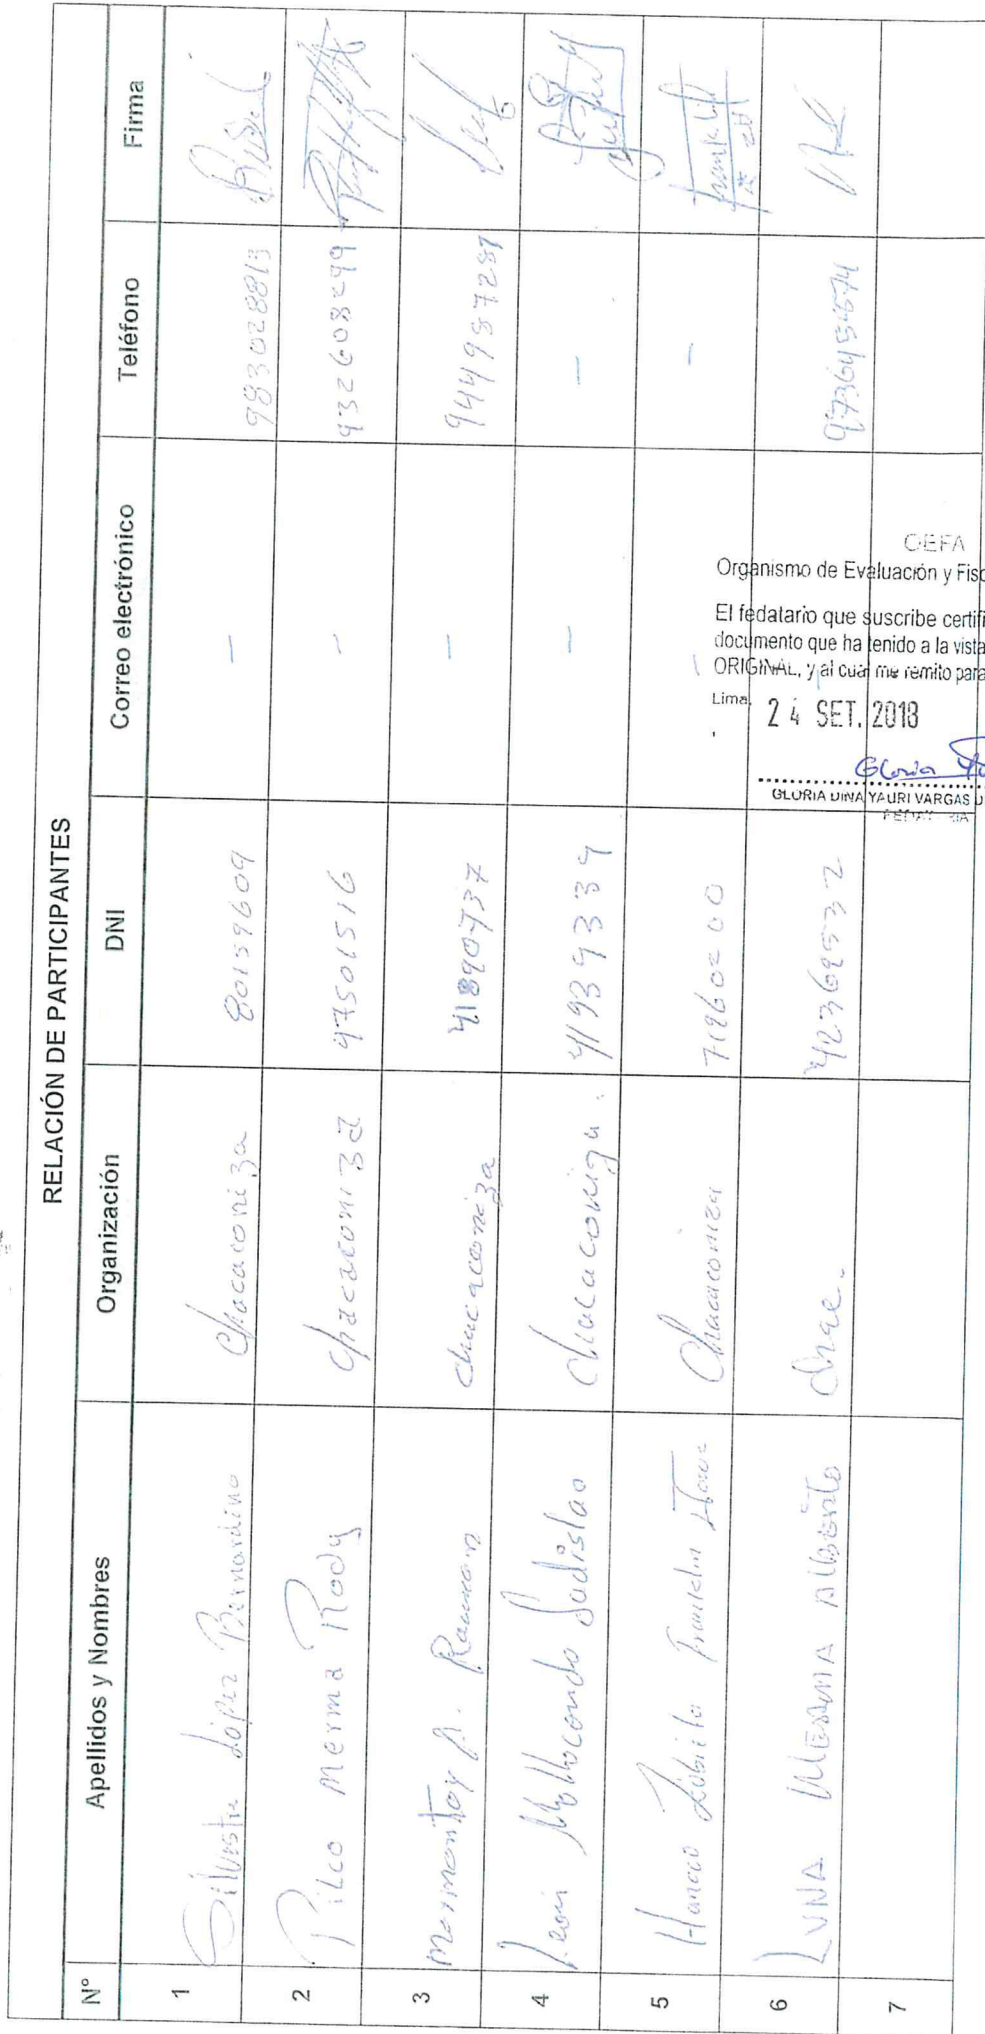 RELACIÓN DE PARTICIPANTES
N° Apellidos y Nombres Organización DNI Correo electrónico Teléfono Firma
1 Silvestre López Bernardino Chacaconiza 80159609 - 983028813
2 Pilco Merma Rody Chacaconiza 47501516 - 932608299
3 Mormontoy A. Ramon chacaconiza 41890737 - 944987287
4 Leon Mollocondo Ladislao Chacaconiza. 41939339 - -
5 Hancco Zubieta Franklin Chacaconiza 71960200 - -
6 LUNA MERMA Alberto Chac. 42369532 - 973645674
7
OEFA
Organismo de Evaluación y Fisc
El fedatario que suscribe certifi
documento que ha tenido a la vista
ORIGINAL, y al cual me remito para
Lima, 24 SET. 2018
Gloria
GLORIA DINA YAURI VARGAS D